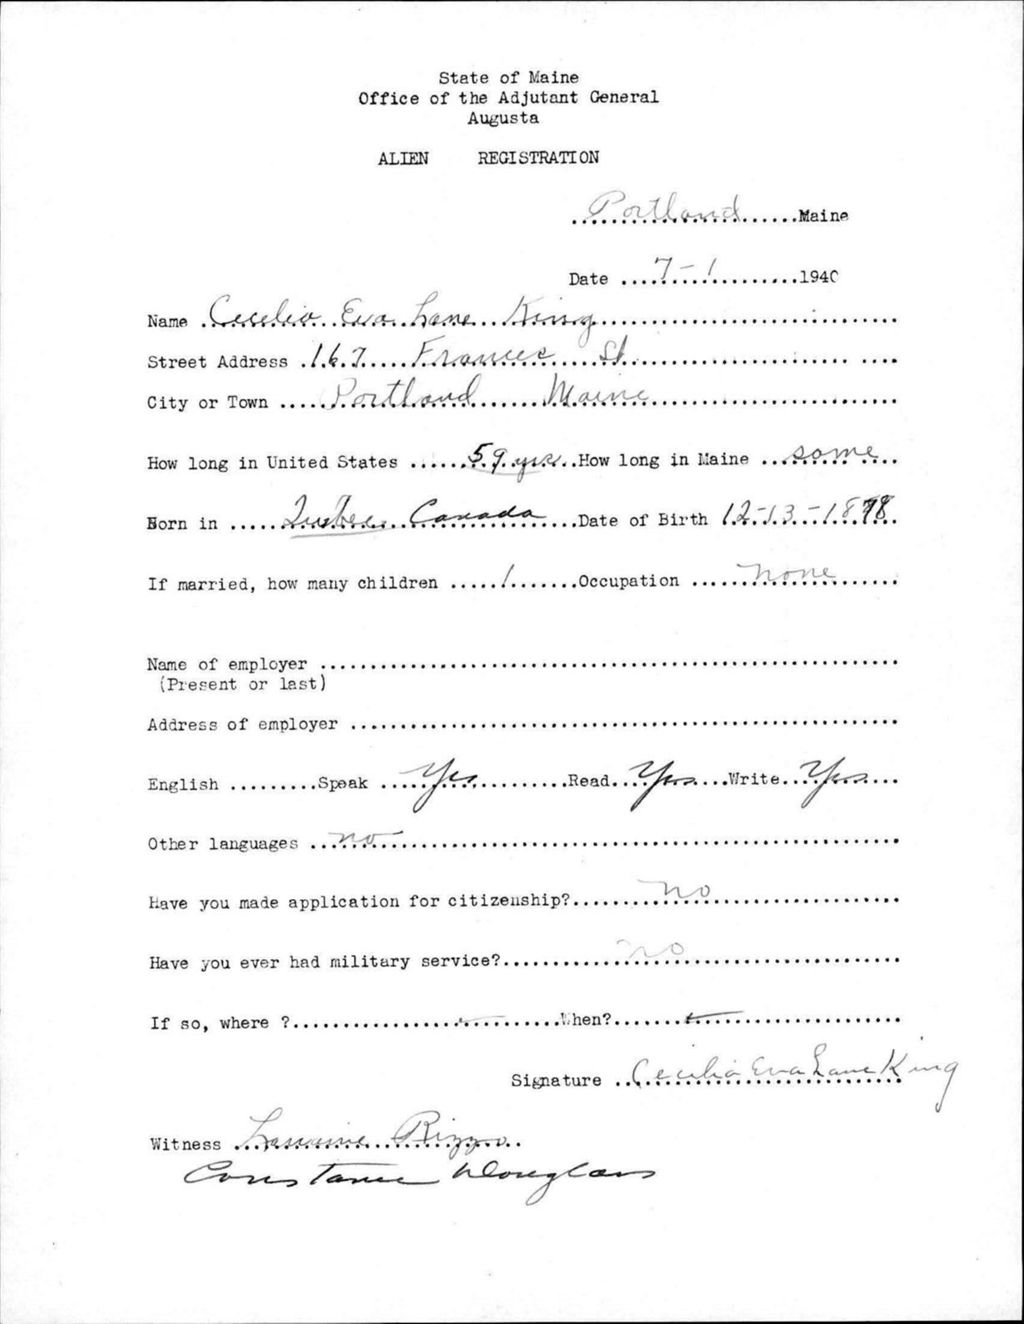 State of Maine
Office of the Adjutant General
Augusta
ALIEN REGISTRATION
Portland Maine
Date 7-1 1940
Name Cecilia Eva Lane King
Street Address 167 Frances St.
City or Town Portland Maine
How long in United States 59 yrs. How long in Maine some
Born in Quebec Canada Date of Birth 12-13-1878
If married, how many children 1 Occupation none
Name of employer
(Present or last)
Address of employer
English Speak Yes Read Yes Write Yes
Other languages no
Have you made application for citizenship? no
Have you ever had military service? no
If so, where ? When?
Signature Cecilia Eva Lane King
Witness Lorraine Rizzo
Constance Douglass